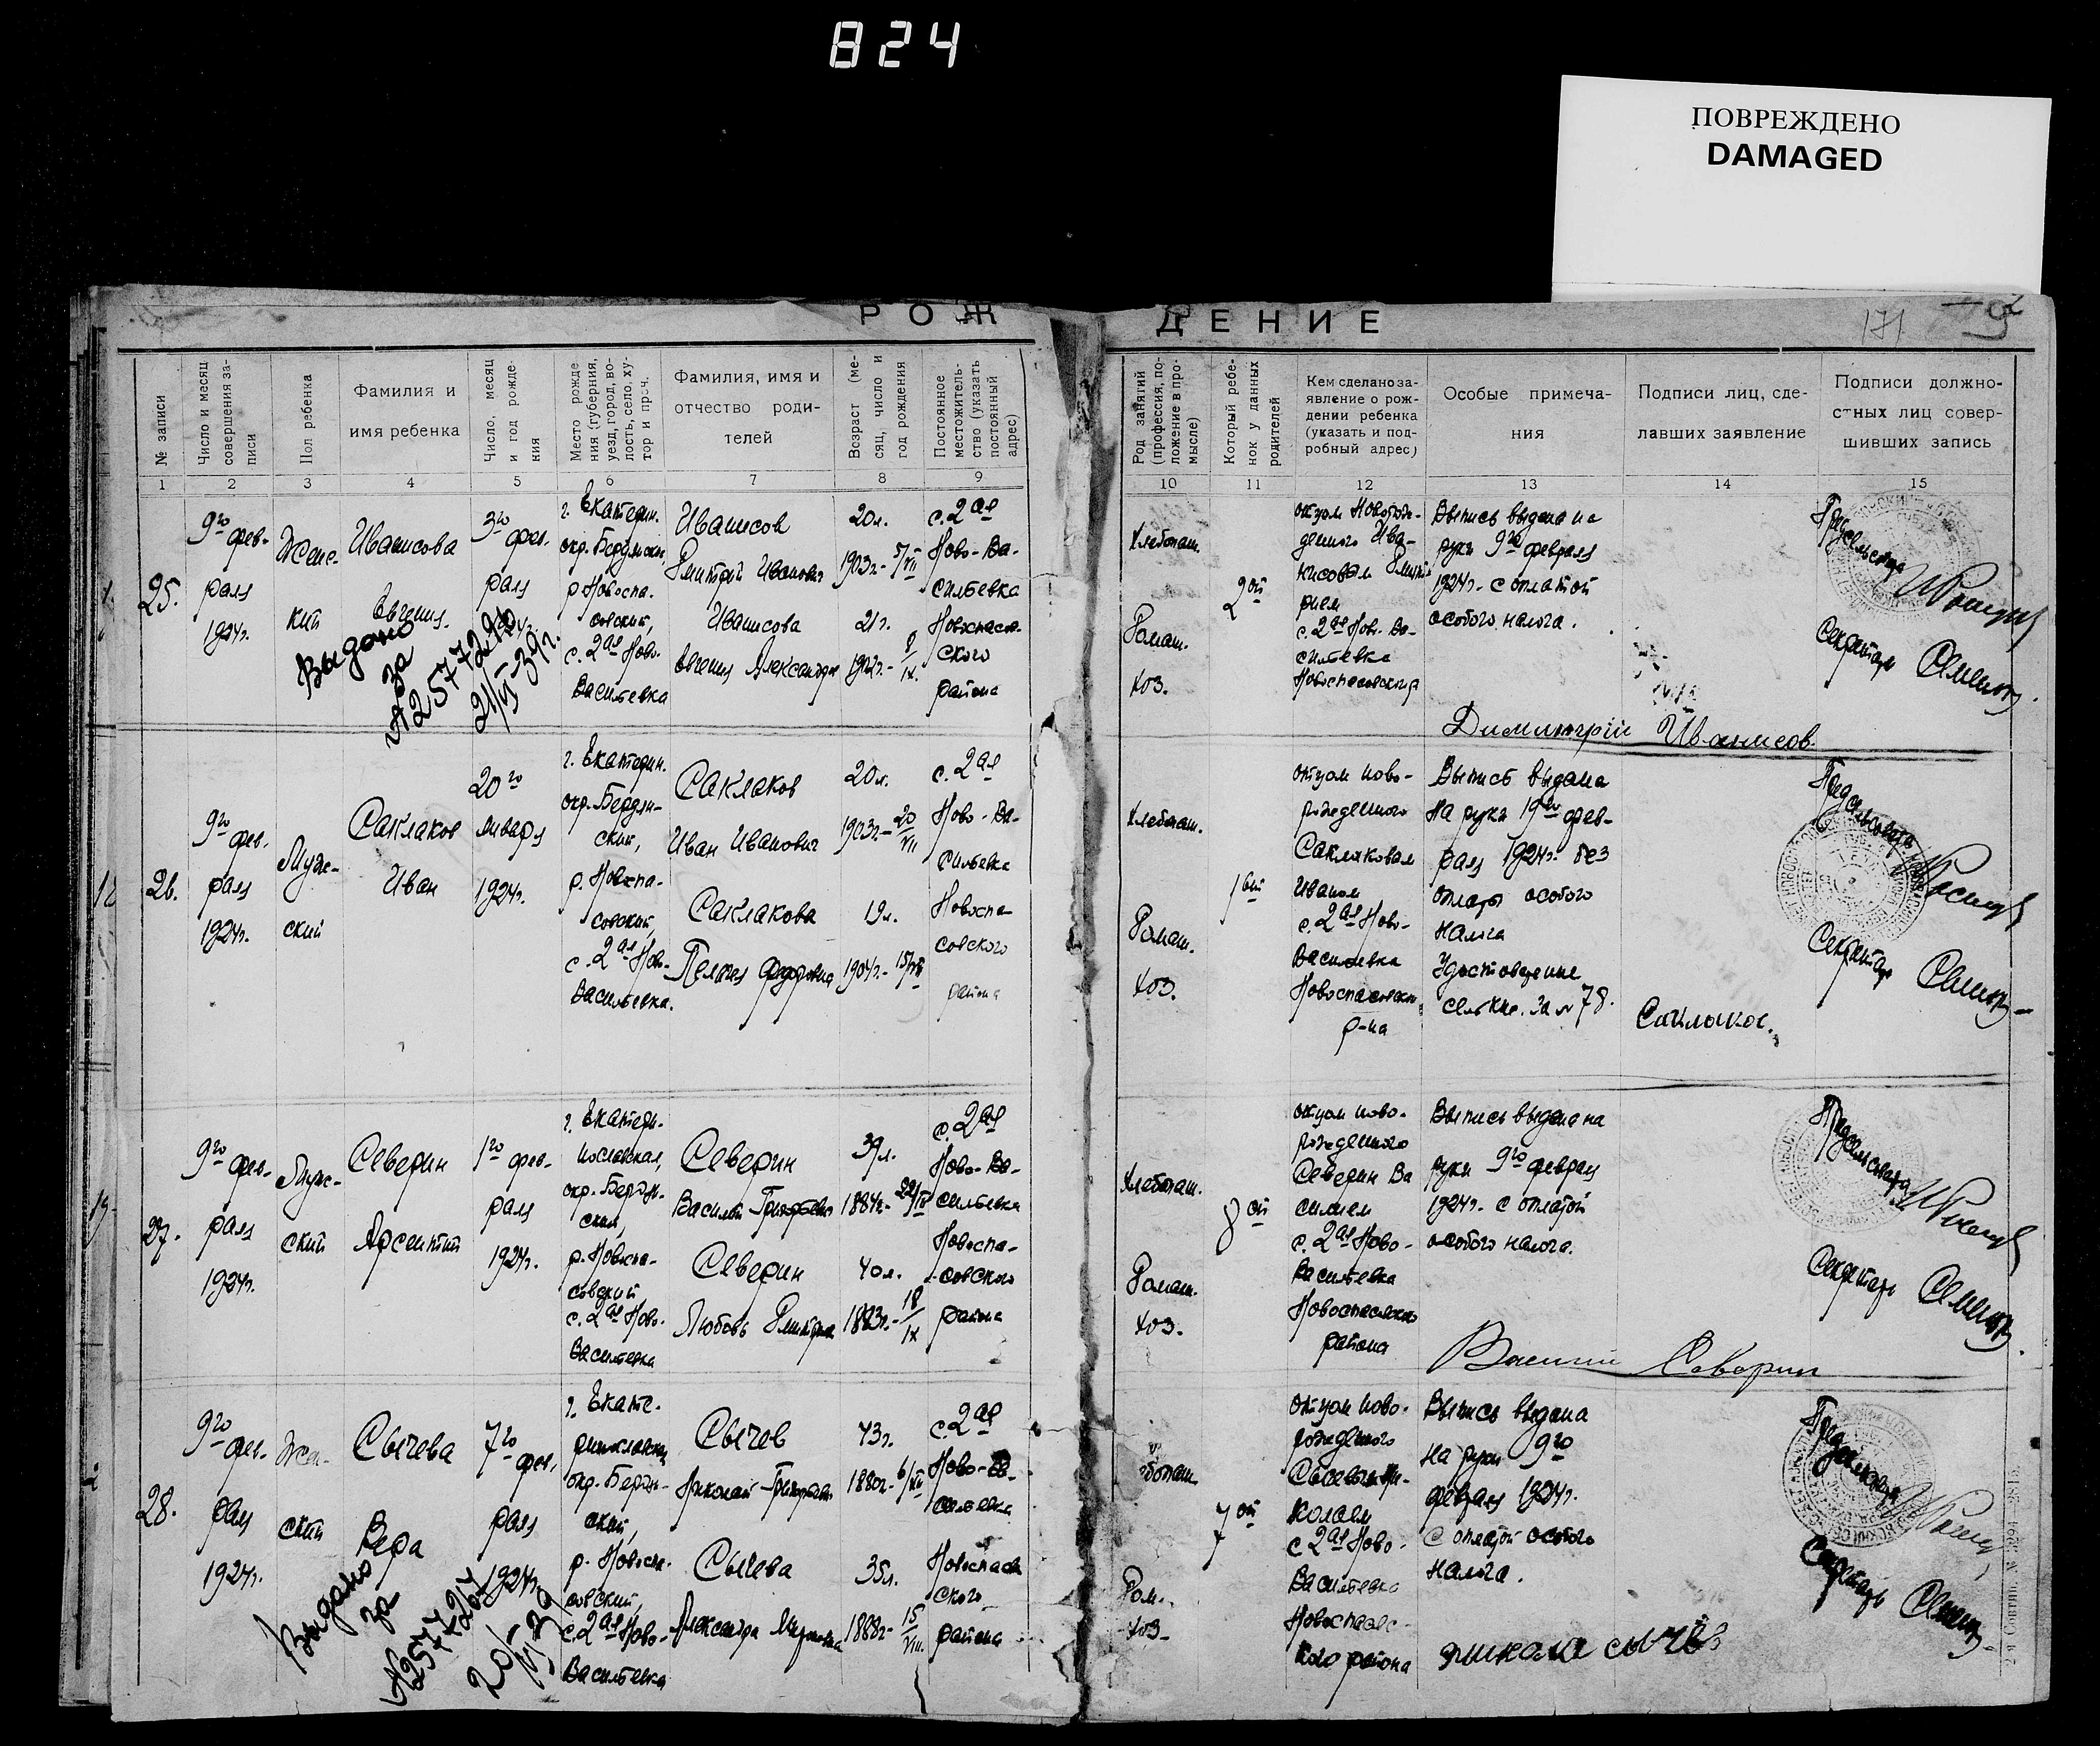 824
ПОВРЕЖДЕНО
DAMAGED
РОЖДЕНИЕ
171
№ записи
Число и месяц совершения за-
писи
Пол ребенка
Фамилия и
имя ребенка
Число, месяц
и год рожде-
ния
Место рожде
ния (губерния,
уезд, город, во-
лость, село, ху-
тор и проч.
Фамилия, имя и
отчество роди-
телей
Возраст (ме-
сяц, число и
год рождения
Постоянное
местожитель-
ство (указать
постоянный
адрес)
Род занятий
(профессия, по-
ложение в про-
мысле)
Который ребе-
нок у данных
родителей
Кем сделано за-
явление о рож-
дении ребенка
(указать и под-
робный адрес)
Особые примеча-
ния
Подписи лиц, сде-
лавших заявление
Подписи должно-
стных лиц совер-
шивших запись
1 2 3 4 5 6 7 8 9 10 11 12 13 14 15
25.
9го фев-
раля
1924г.
Женс-
кий
Иванисова
Евгения.
3го фев.
раля
г. Екатерин.
окр. Бердянск.
р. Новоспа-
совский,
с. 2ая Ново-
Васильевка
Иванисов
Дмитрий Иванович
Иванисова
Евгения Александр
20л.
1903г. - 5/VII
21г.
1902г. - 8/IX.
с. 2ая
Ново-Ва-
сильевка
Новоспасов-
ского
района
Выдано
за
А257
21/VI-39г.
Хлебопаш.
Домаш.
хоз.
2ой
отцом Новорож-
денного Ива-
нисовым Дмит-
рием
с. 2ая Ново-Ва-
сильевка
Новоспасовский
Выпись выдана на
руки 9го февраля
1924г. с оплатой
особого налога.
Димитрий Иванисов.
Предсельсовета
Секретарь
26.
9го
фев.
раля
1924г.
Муж-
ский
Саклаков
Иван
20го
января
1924г.
г. Екатерин.
окр. Бердян-
ский,
р. Новоспа-
совский,
с. 2ая Ново-
Васильевка.
Саклаков
Иван Иванович
Саклакова
Пелагея Федоровна
20л.
1903г. - 20/VII
19л.
1904г. - 15/VII
с. 2ая
Ново-Ва-
сильевка
Новоспа-
совского
района
Хлебопаш.
Домаш.
хоз.
1ый
отцом ново-
рожденного
Саклаковым
Иваном
с. 2ая Ново-
Васильевка
Новоспасовск.
р-на
Выпись выдана
на руки 19го фев-
раля 1924г. без
оплаты особого
налога
Удостоверение
за № 78.
Саклаков.
Предсельсовета
Секретарь
27.
9го фев-
раля
1924г.
Муж-
ский
Северин
Арсентий
1го фев-
раля
1924г.
г. Екатери-
нославская,
окр. Бердян-
ский,
р. Новоспа-
совский
с. 2ая Ново-
Васильевка
Северин
Василий Григорьевич
Северин
Любовь Дмитриев
39л.
1884г. -
40л.
1883г. - 18/IX
с. 2ая
Ново-Ва-
сильевка
Новоспа-
совского
района
Хлебопаш.
Домаш.
хоз.
8ой
отцом ново-
рожденного
Северин Ва
силием
с. 2ая Ново-
Васильевка
Новоспасовского
района
Выпись выдана на
руки 9го февраля
1924г. с оплатой
особого налога.
Василий Северин
Предсельсовета
Секретарь
28.
9го
фев.
раля
1924г.
Жен-
ский
Сычева
Вера
7го
фев.
раля
1924г.
г. Екате-
ринославская
окр. Бердян-
ский,
р. Новоспа-
совский,
с. 2ая Ново-
Васильевка
Сычев
Николай Григорьев
Сычева
Александра Мироновна
43г.
1880г. - 6/XII
35л.
1888г. - 15/VIII.
с. 2ая
Ново-Ва-
сильевка
Новоспасов
ского
района
Выдано
за
20/VI-39
Дом.
хоз.
7ой
отцом ново-
рожденного
Сычевым Ни-
колаем
с 2ая Ново-
Васильевка
Новоспасовс-
кого района
Выпись выдана
на руки 9го
февраля 1924г.
с оплатой особого
налога.
Предсельсовета
Секретарь